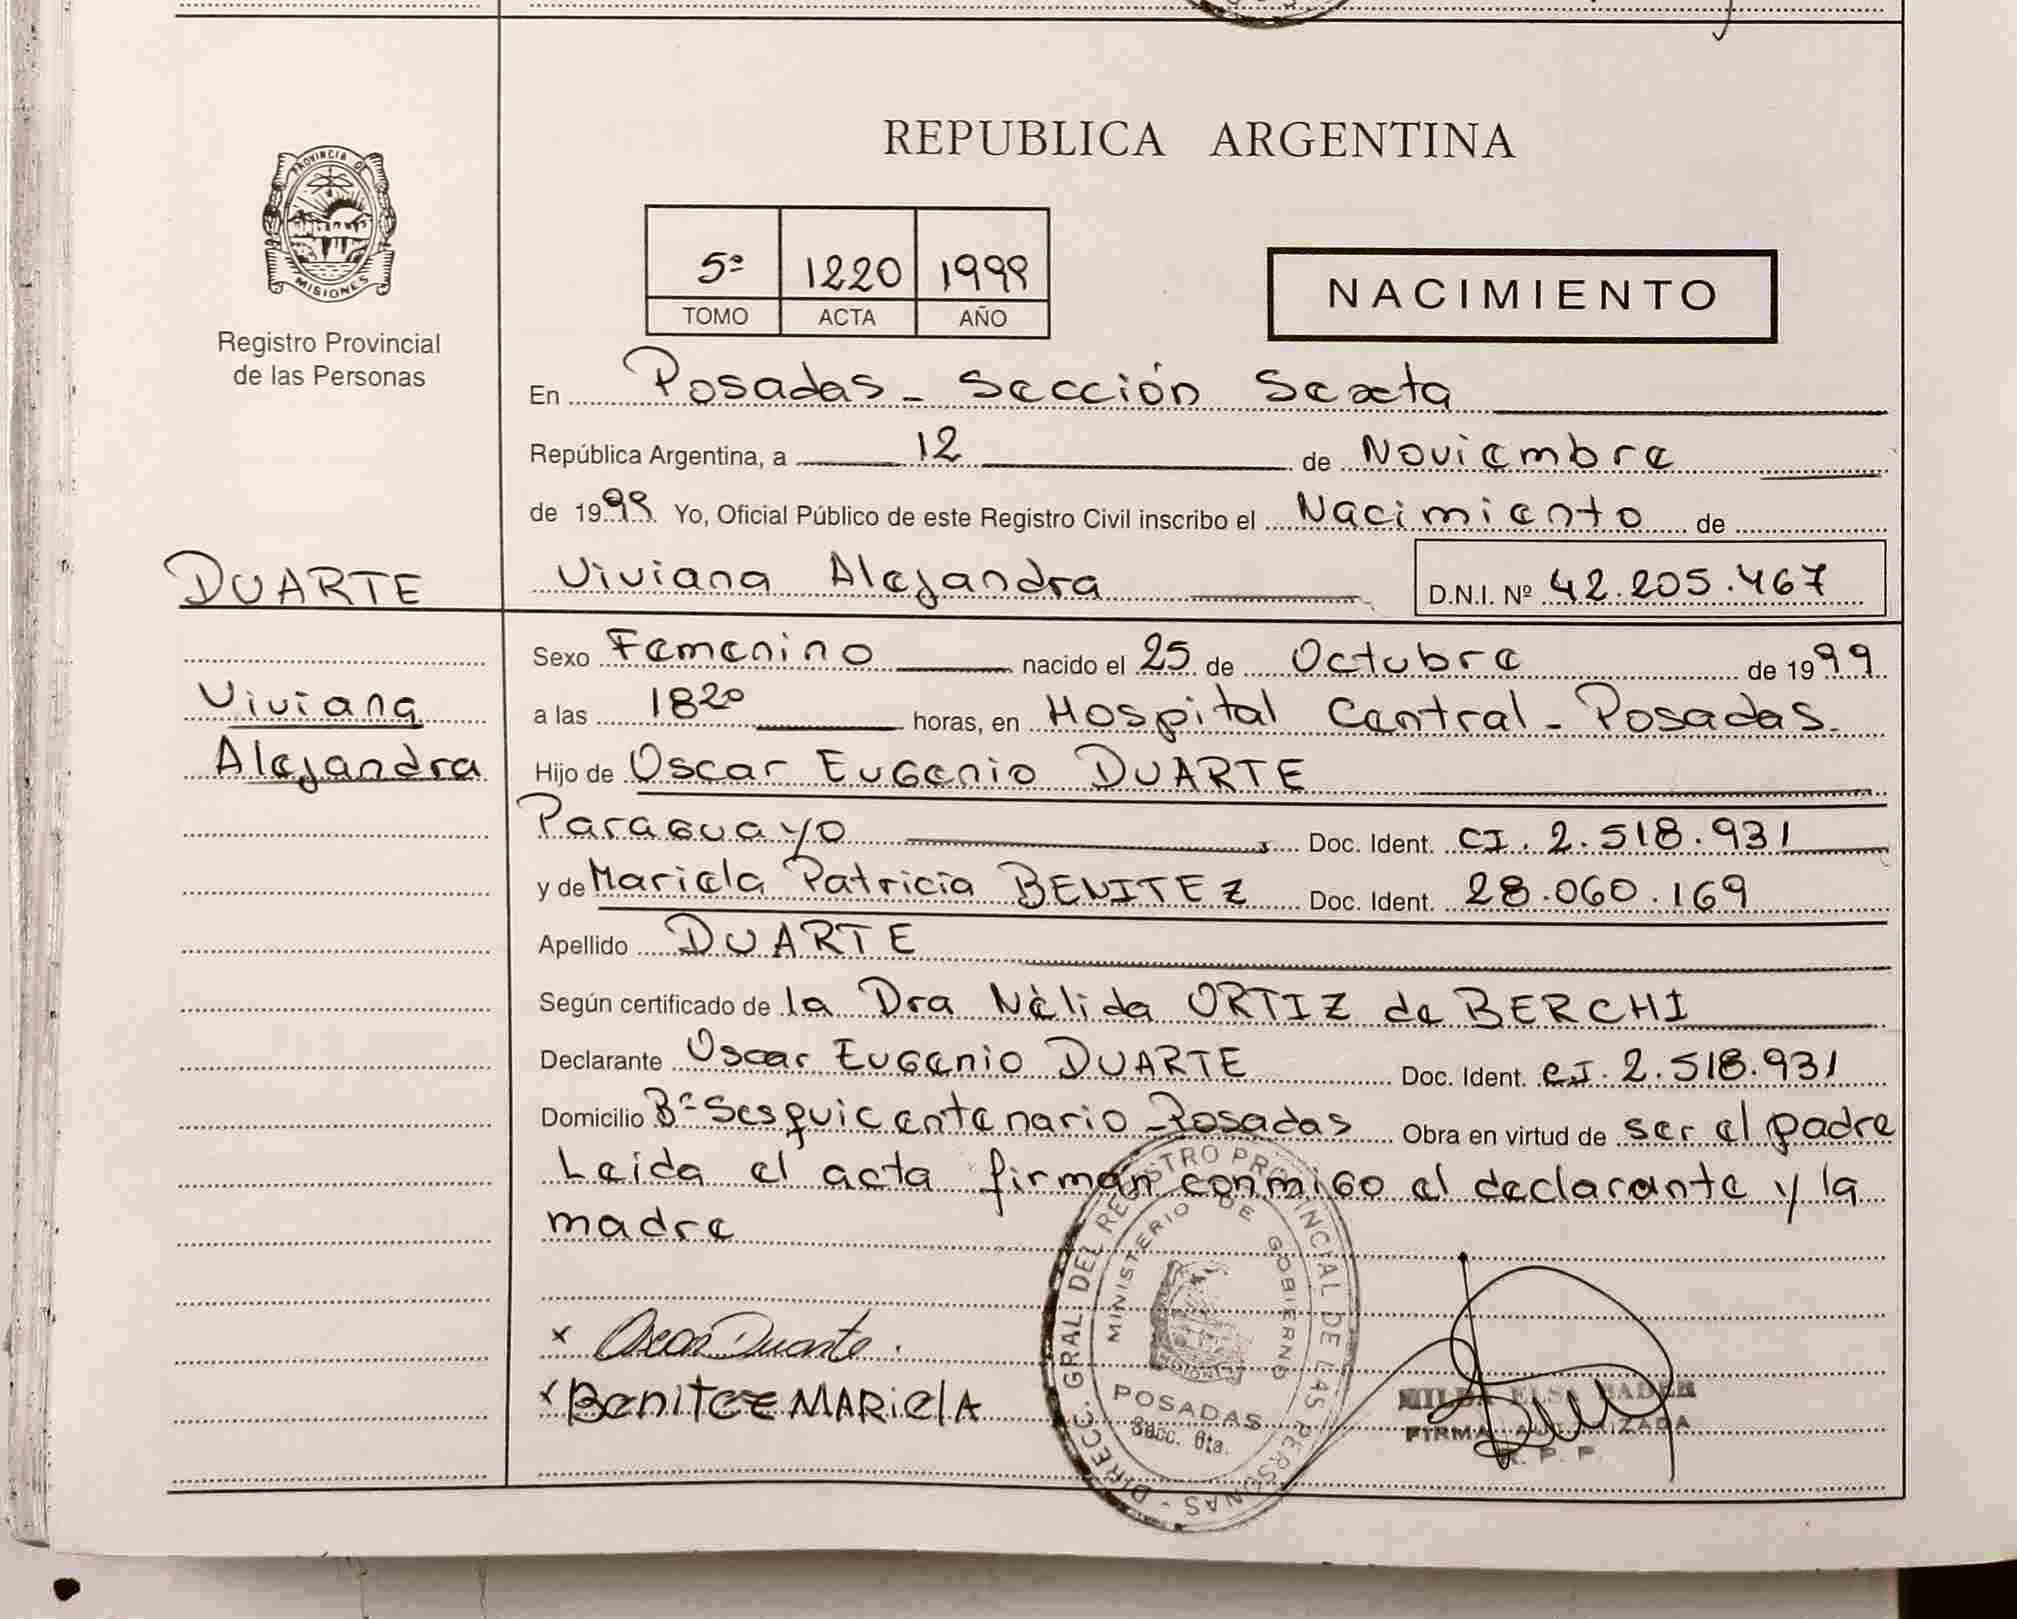 PROVINCIA DE
MISIONES
Registro Provincial
de las Personas
REPUBLICA ARGENTINA
5º 1220 1999
TOMO ACTA AÑO
NACIMIENTO
En Posadas - Sección Sexta
República Argentina, a 12 de Noviembre
de 1999 Yo, Oficial Público de este Registro Civil inscribo el Nacimiento de
DUARTE Viviana Alejandra D.N.I. Nº 42.205.467
Sexo Femenino nacido el 25 de Octubre de 1999
Viviana a las 18²⁰ horas, en Hospital Central - Posadas.
Alejandra Hijo de Oscar Eugenio DUARTE
Paraguayo Doc. Ident. CI. 2.518.931
y de Mariela Patricia BENITEZ Doc. Ident. 28.060.169
Apellido DUARTE
Según certificado de la Dra Nèlida ORTIZ de BERCHI
Declarante Oscar Eugenio DUARTE Doc. Ident. CI. 2.518.931
Domicilio Bº Sesquicentenario - Posadas Obra en virtud de ser el padre
Leida el acta firman conmigo el declarante y la
madre
x Oscar Duarte.
x Benitez MARielA
DIRECC. GRAL DEL REGISTRO PROVINCIAL DE LAS PERSONAS -
MINISTERIO DE GOBIERNO
POSADAS
Secc. 6ta.
ELSA
FIRMA AUTORIZADA
R. P. P.